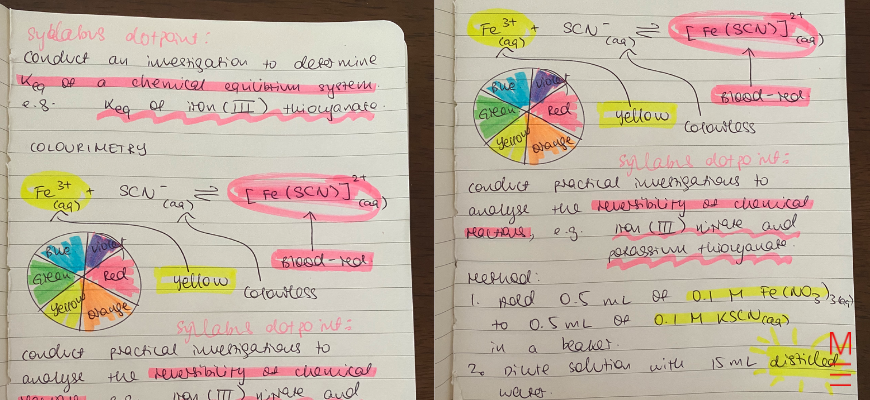 syllabus dotpoint:
conduct an investigation to determine
Keq of a chemical equilibrium system.
e.g. Keq of iron (III) thiocyanate.
COLOURIMETRY
Fe³⁺(aq) + SCN⁻(aq) ⇌ [Fe(SCN)]²⁺(aq)
Blue Violet
Green Red
Yellow Orange
Blood-red
yellow
colourless
syllabus dotpoint:
conduct practical investigations to
analyse the reversibility of chemical
e.g. iron (III) nitrate and
Fe³⁺(aq) + SCN⁻(aq) ⇌ [Fe(SCN)]²⁺(aq)
Blue Violet
Green Red
Yellow Orange
Blood-red
yellow
colourless
syllabus dotpoint:
conduct practical investigations to
analyse the reversibility of chemical
reactions, e.g. iron (III) nitrate and
potassium thiocyanate.
Method:
1. Add 0.5 mL of 0.1 M Fe(NO₃)₃(aq)
to 0.5 mL of 0.1 M KSCN(aq)
in a beaker.
2. Dilute solution with 15 mL distilled
water.
M